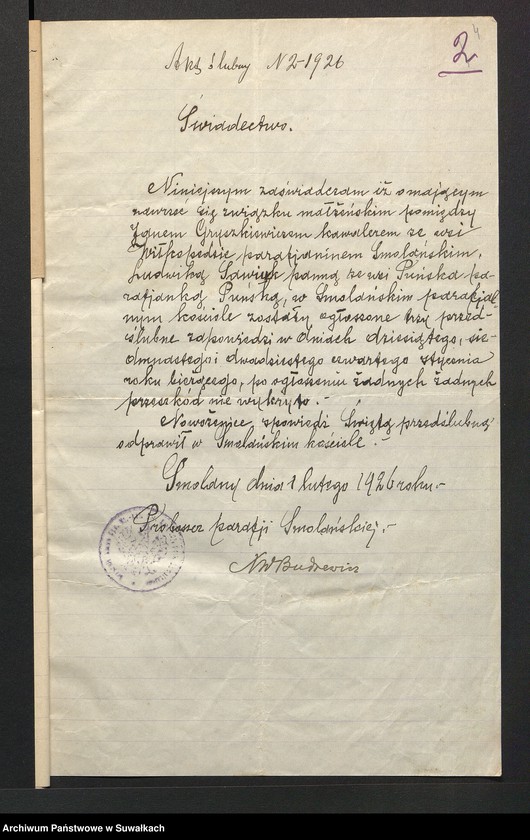 4
2
Akt ślubny N2-1926
Świadectwo.
Niniejszym zaświadczam iż o mającym
zawrzeć się związku małżeńskim pomiędzy
Janem Gryszkiewiczem kawalerem ze wsi
Wiłkopedzie parafjaninem Smolańskim,
Ludwiką panną ze wsi Puńska pa-
rafjanką Puńską, w Smolańskim parafjal
nym kościele zostały ogłoszone trzy przed-
ślubne zapowiedzi w dniach dziesiątego, sie-
dmnastego i dwadziestego czwartego stycznia
roku bieżącego, po ogłoszeniu żadnych żadnych
przeszkód nie wykryto.-
Nowożeniec spowiedź Świętą przedślubną
odprawił w Smolańskim kościele.-
Smolany dnia 1 lutego 1926 roku.-
Proboszcz parafji Smolańskiej.-
Budrewicz
Archiwum Państwowe w Suwałkach